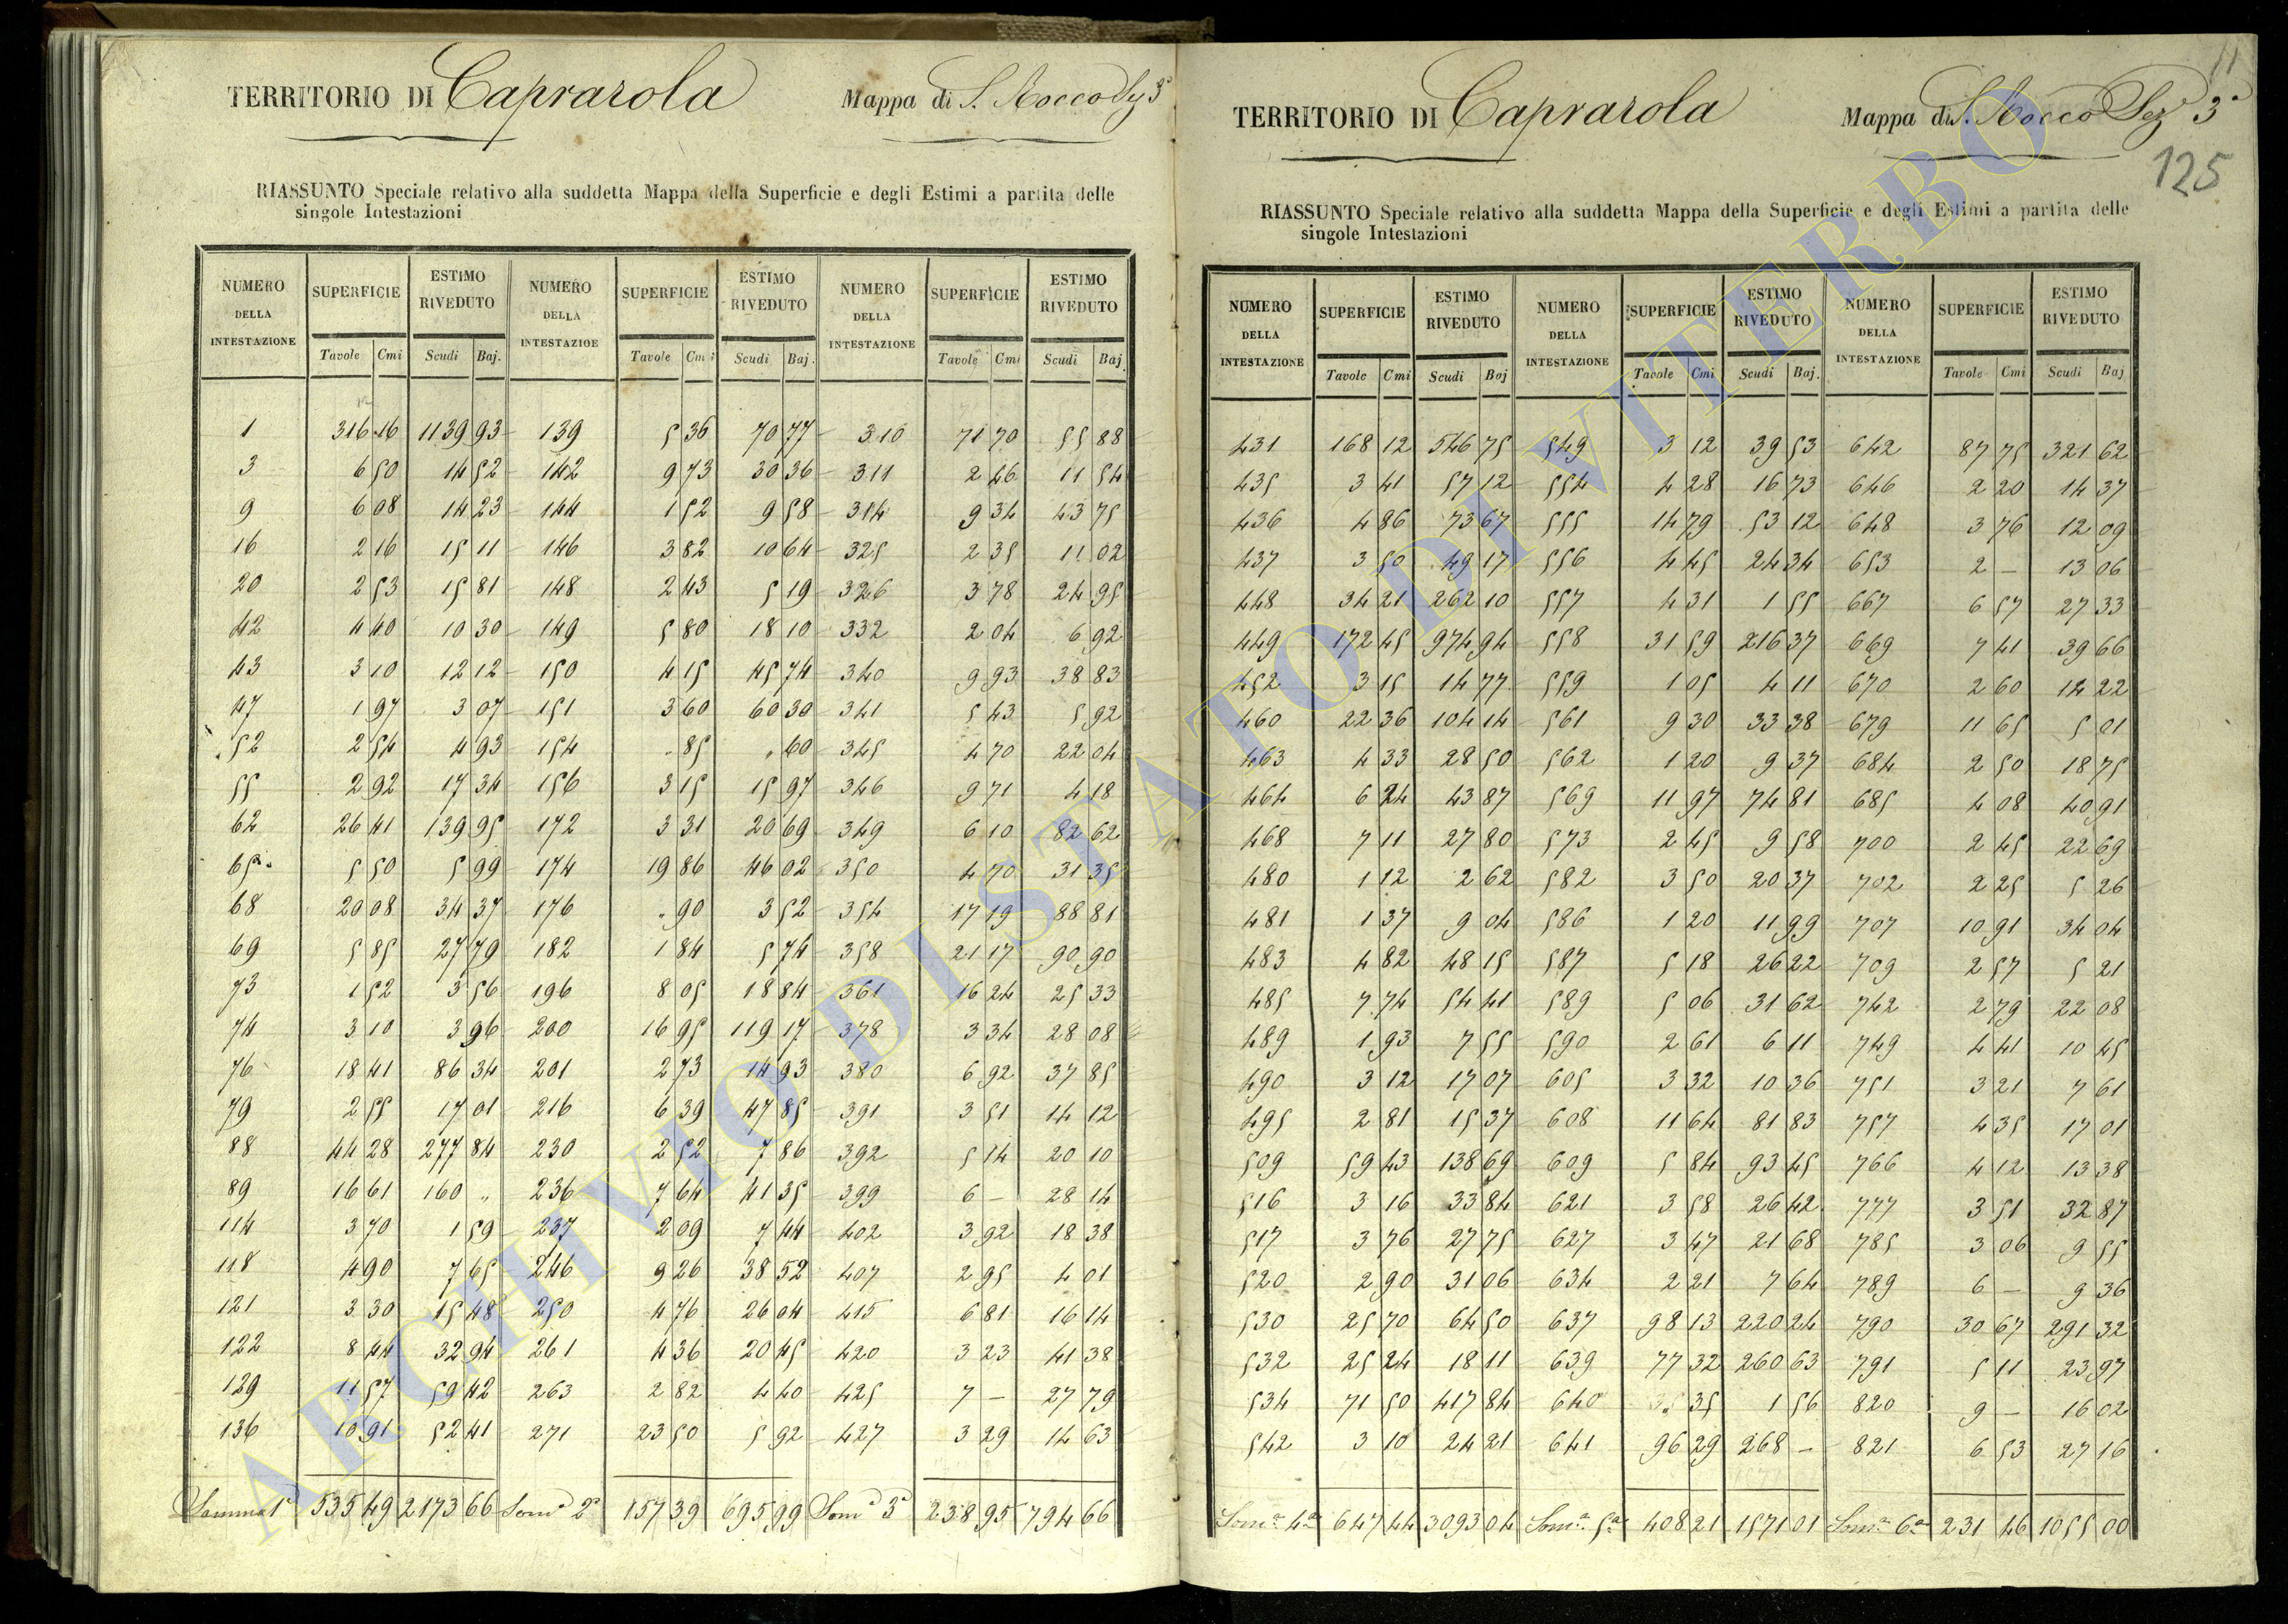 TERRITORIO DI Caprarola Mappa di S. Rocco Sez 3ª
RIASSUNTO Speciale relativo alla suddetta Mappa della Superficie e degli Estimi a partita delle
singole Intestazioni
NUMERO DELLA INTESTAZIONE SUPERFICIE ESTIMO RIVEDUTO NUMERO DELLA INTESTAZIOE SUPERFICIE ESTIMO RIVEDUTO NUMERO DELLA INTESTAZIONE SUPERFICIE ESTIMO RIVEDUTO
Tavole Cmi Scudi Baj. Tavole Cmi Scudi Baj. Tavole Cmi Scudi Baj.
1 316 16 1139 93 139 5 36 70 77 310 71 70 55 88
3 6 50 14 52 142 9 73 30 36 311 2 46 11 54
9 6 08 14 23 144 1 52 9 58 314 9 34 43 75
16 2 16 15 11 146 3 82 10 64 325 2 35 11 02
20 2 53 15 81 148 2 43 5 19 326 3 78 24 95
42 4 40 10 30 149 5 80 18 10 332 2 04 6 92
43 3 10 12 12 150 4 15 45 74 340 9 93 38 83
47 1 97 3 07 151 3 60 60 30 341 5 43 5 92
52 2 54 4 93 154 " 85 " 60 345 4 70 22 04
55 2 92 17 34 156 3 15 15 97 346 9 71 4 18
62 26 41 139 95 172 3 31 20 69 349 6 10 82 62
65 5 50 5 99 174 19 86 46 02 350 4 70 31 35
68 20 08 34 37 176 " 90 3 52 354 17 19 88 81
69 5 85 27 79 182 1 84 5 74 358 21 17 90 90
73 1 52 3 56 196 8 05 18 84 361 16 24 25 33
74 3 10 3 96 200 16 95 119 17 378 3 34 28 08
76 18 41 86 34 201 2 73 14 93 380 6 92 37 85
79 2 55 17 01 216 6 39 47 85 391 3 51 14 12
88 44 28 277 84 230 2 52 7 86 392 5 14 20 10
89 16 61 160 " 236 7 64 41 35 399 6 — 28 14
114 3 70 1 59 237 2 09 7 44 402 3 92 18 38
118 4 90 7 65 246 9 26 38 52 407 2 95 4 01
121 3 30 15 48 250 4 76 26 04 415 6 81 16 14
122 8 44 32 94 261 4 36 20 45 420 3 23 41 38
129 11 57 59 42 263 2 82 4 40 425 7 — 27 79
136 10 91 52 41 271 23 50 5 92 427 3 29 14 63
Somma 1ª 535 49 2173 66 Somª 2ª 157 39 695 99 Somª 3ª 238 95 794 66
11
TERRITORIO DI Caprarola Mappa di S. Rocco Sez 3ª
125
RIASSUNTO Speciale relativo alla suddetta Mappa della Superficie e degli Estimi a partita delle
singole Intestazioni
NUMERO DELLA INTESTAZIONE SUPERFICIE ESTIMO RIVEDUTO NUMERO DELLA INTESTAZIONE SUPERFICIE ESTIMO RIVEDUTO NUMERO DELLA INTESTAZIONE SUPERFICIE ESTIMO RIVEDUTO
Tavole Cmi Scudi Baj Tavole Cmi Scudi Baj. Tavole Cmi Scudi Baj
431 168 12 546 75 549 3 12 39 53 642 87 75 321 62
435 3 41 57 12 554 4 28 16 73 646 2 20 14 37
436 4 86 73 67 555 14 79 53 12 648 3 76 12 09
437 3 50 49 17 556 4 45 24 34 653 2 — 13 06
448 34 21 262 10 557 4 31 1 55 667 6 57 27 33
449 172 45 974 94 558 31 59 216 37 669 7 41 39 66
452 3 15 14 77 559 1 05 4 11 670 2 60 14 22
460 22 36 104 14 561 9 30 33 38 679 11 65 5 01
463 4 33 28 50 562 1 20 9 37 684 2 50 18 75
464 6 24 43 87 569 11 97 74 81 685 4 08 40 91
468 7 11 27 80 573 2 45 9 58 700 2 45 22 69
480 1 12 2 62 582 3 50 20 37 702 2 25 5 26
481 1 37 9 04 586 1 20 11 99 707 10 91 34 04
483 4 82 48 15 587 5 18 26 22 709 2 57 5 21
485 7 74 54 41 589 5 06 31 62 742 2 79 22 08
489 1 93 7 55 590 2 61 6 11 749 4 41 10 45
490 3 12 17 07 605 3 32 10 36 751 3 21 7 61
495 2 81 15 37 608 11 64 81 83 757 4 35 17 01
509 59 43 138 69 609 5 84 93 45 766 4 12 13 38
516 3 16 33 84 621 3 58 26 42 777 3 51 32 87
517 3 76 27 75 627 3 47 21 68 785 3 06 9 55
520 2 90 31 06 634 2 21 7 64 789 6 — 9 36
530 25 70 64 50 637 98 13 220 24 790 30 67 291 32
532 25 24 18 11 639 77 32 260 63 791 5 11 23 97
534 71 50 417 84 640 " 35 1 56 820 9 — 16 02
542 3 10 24 21 641 96 29 268 — 821 6 53 27 16
Somª 4ª 647 44 3093 04 Somª 5ª 408 21 1571 01 Somª 6ª 231 46 1055 00
ARCHIVIO DI STATO DI VITERBO